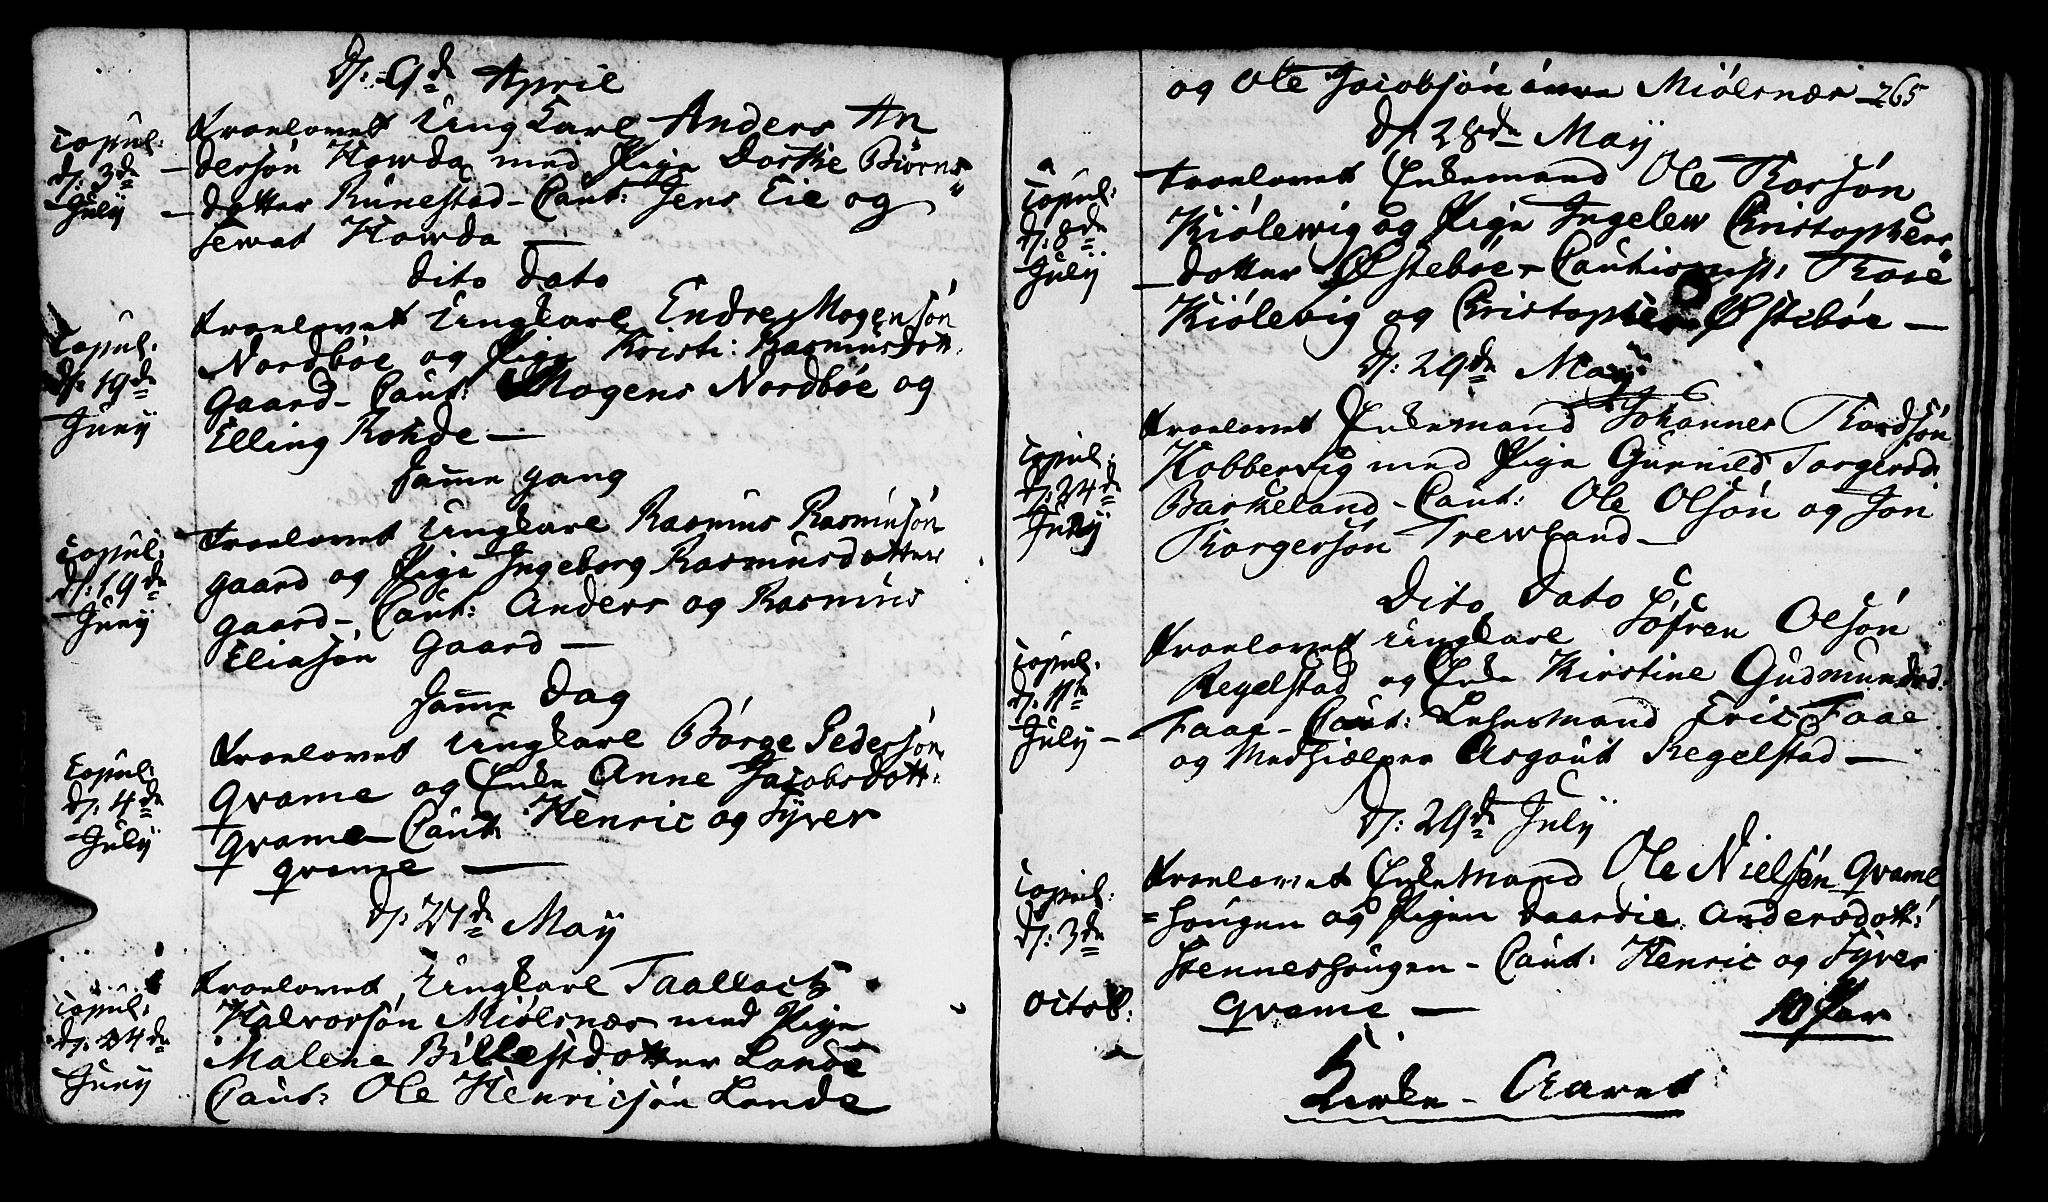 D: 9de April
Copul:
d: 3de
July
Troelovet Ungkarl Anders An
dersøn Howda med Pige Dorthe Biørns
dotter Runestad - Caut: Jens Eie og
Sewat Howda —
Dito Dato
Copul:
d: 19de
Juny
Troelovet Ungkarl Endre Mogensøn
Nordbøe og Pige Kristi: Rasmusdott.
Gaard - Caut: Mogens Nordbøe og
Elling Rohde —
Samme gang
Copul:
d: 19de
Juny
Troelovet Ungkarl Rasmus Rasmusøn
gaard og Pige Ingeborg Rasmusdotter
gaard - Caut: Anders og Rasmus
Eliasøn Gaard —
Samme Dag
Copul:
d: 4de
July
Troelovet Ungkarl Børge Pedersøn
Qvame og Enke Anne Jacobsdott:
Qvame - Caut: Henric og Syver
Qvame —
D: 27de May
Copul:
d: 24de
Juny
Troelovet Ungkarl Taallach
Halvorsøn Miølsnæs med Pige
Malene Billestdotter Lande
Caut: Ole Henricsøn Lande
og Ole Jacobsøn Miølsnæs - 265
D: 28de May
Copul:
d: 8de
July
Troelovet Enkemand Ole Thorsøn
Kiølewig og Pige Ingelew Christophers
dotter Østebøe - Cautionist: Thore
Kiølevig og Christopher Østebøe —
D: 29de May
Copul:
d: 24de
Juny
Troelovet Enkemand Johannes Thordsøn
Hobberwig med Pige Gunnild Torgersd:
Barkeland - Caut: Ole Olsøn og Jon
Thorgersøn Trewland -
Dito Dato
Copul.
d: 11te
July
Troelovet Ungkarl Søfren Olsøn
Regelstad og Enke Kirstine Gudmundsd:
Faae - Caut: Lehnsmand Eric Faae
og Medhielper Asgout Regelstad —
D: 29de July
Copul:
d: 3de
Octob:
Troelovet Enkemand Ole Nielsøn Qvame
hougen og Pigen Daardie Andersdott:
Stenneshougen - Caut: Henric og Syver
Qvame —
10 Par
Kirke - Aaret